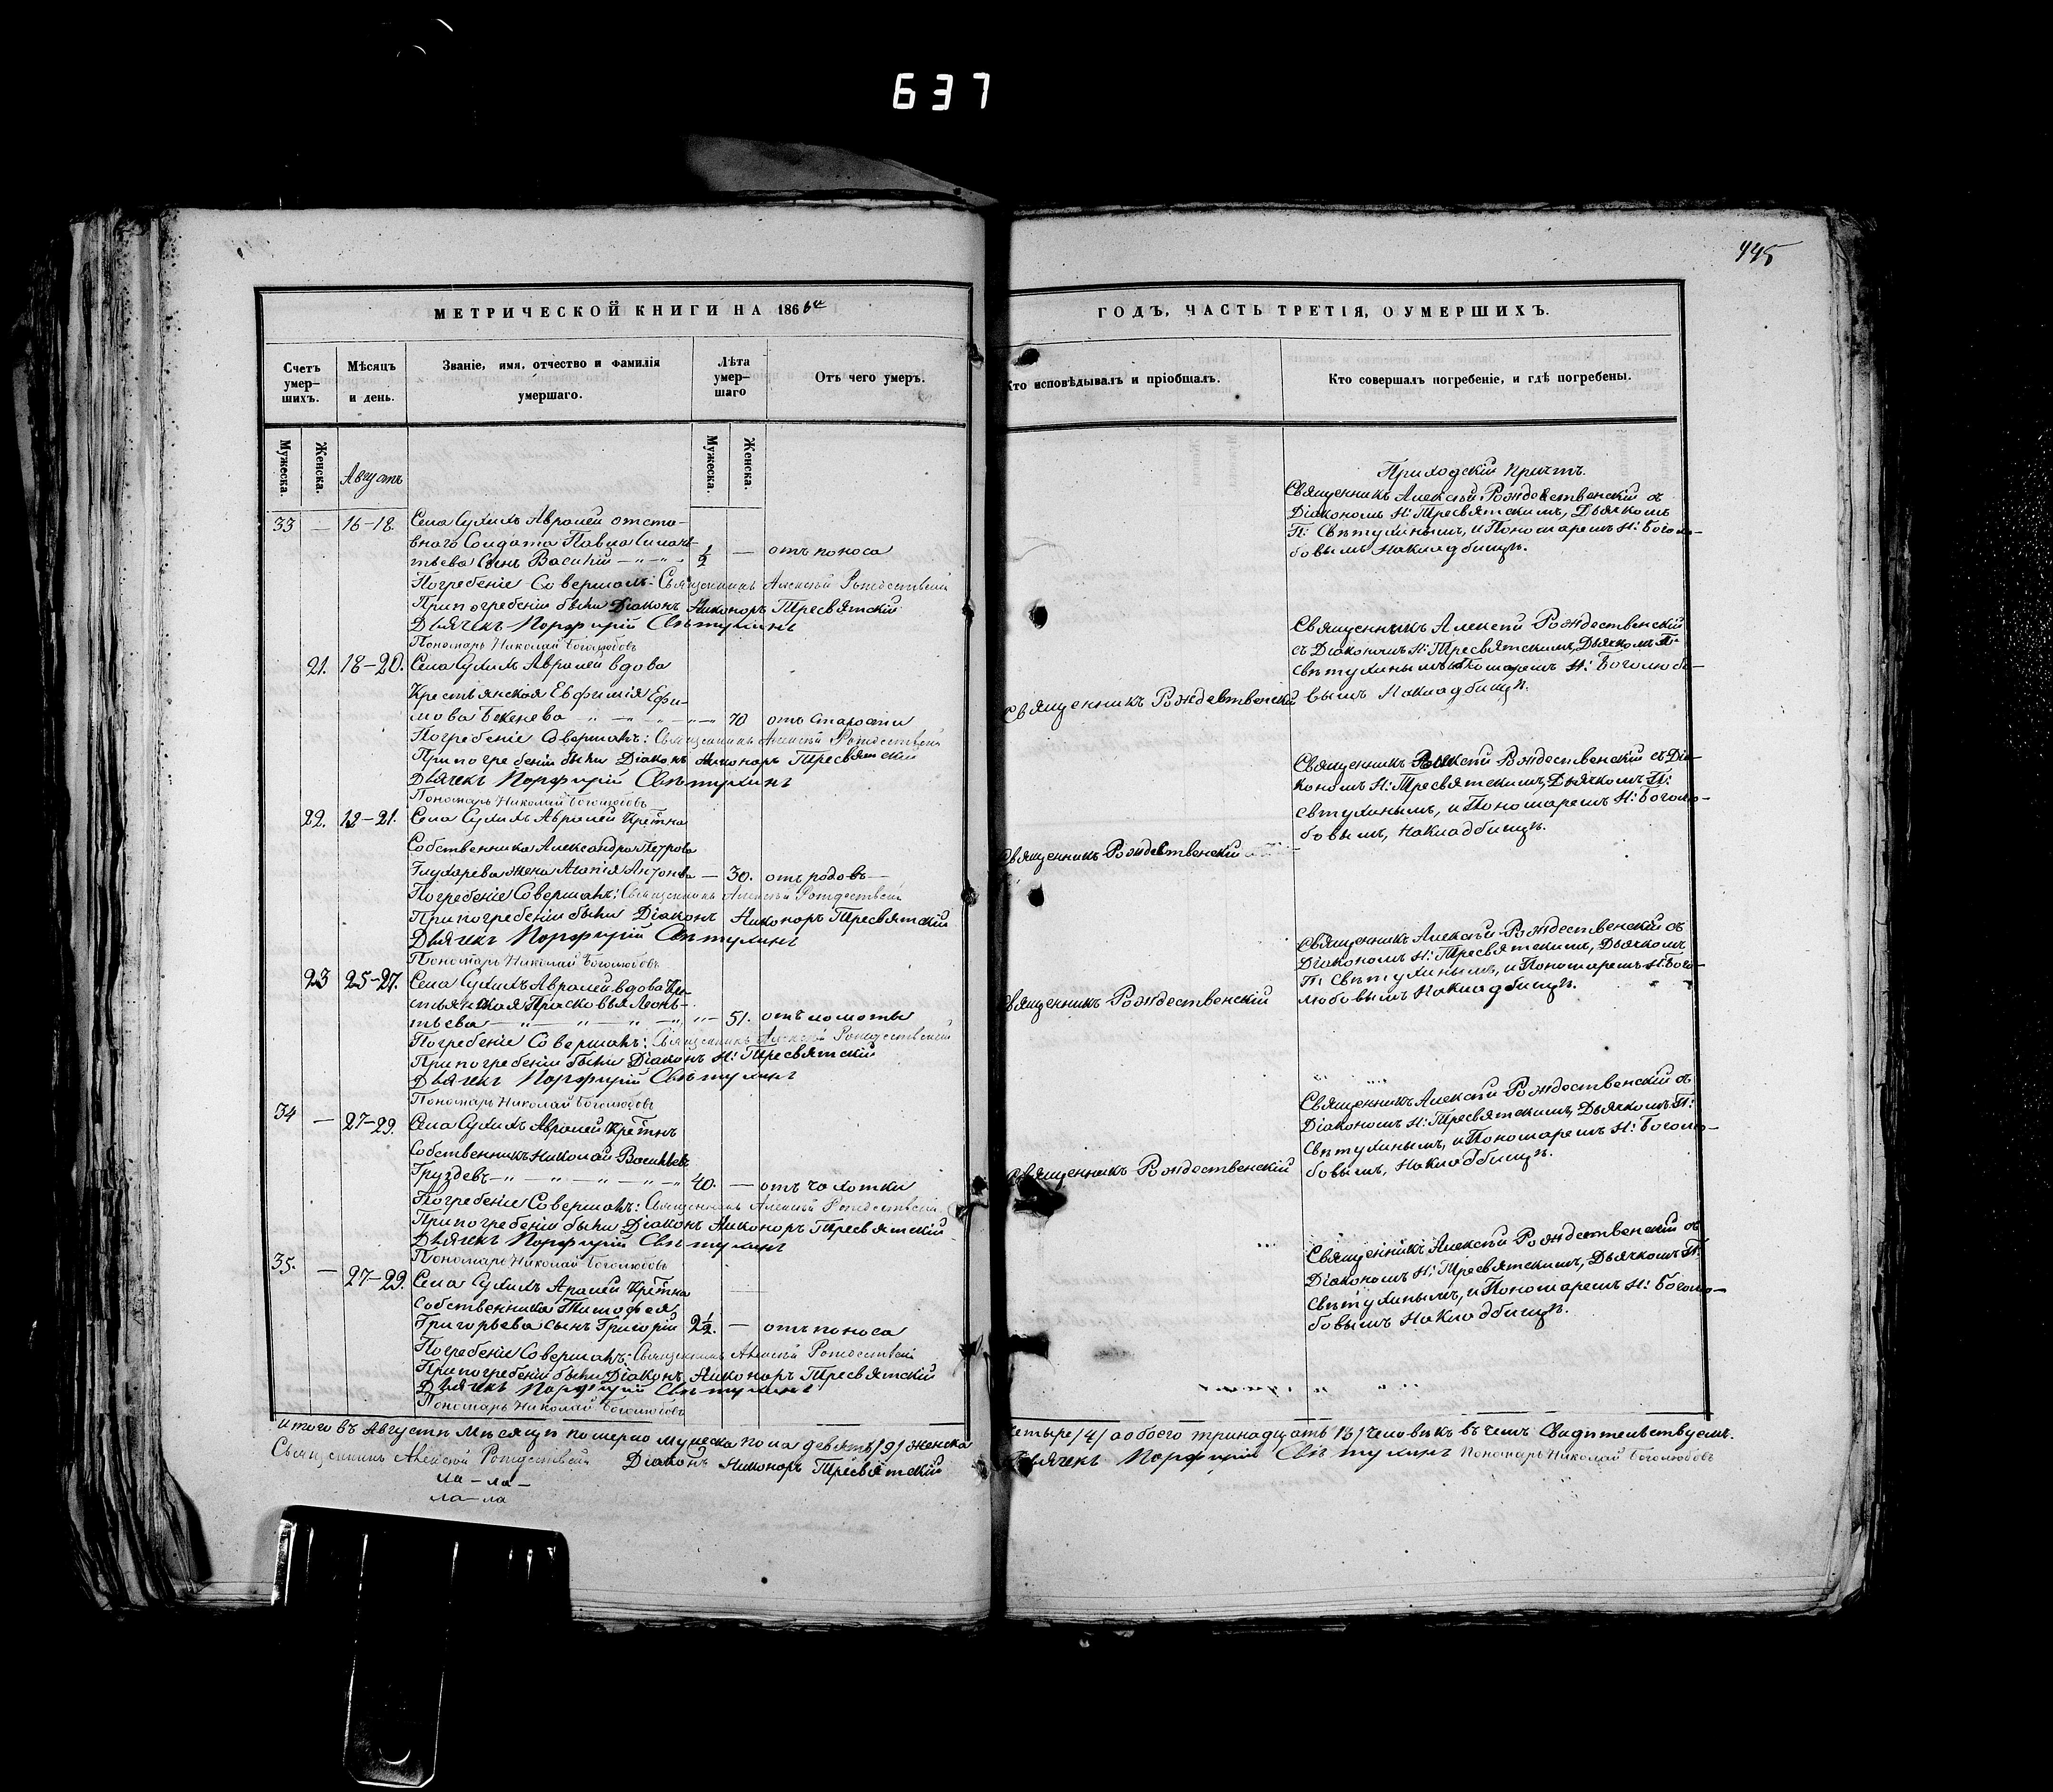 637
445
МЕТРИЧЕСКОЙ КНИГИ НА 1866й
ГОДЪ, ЧАСТЬ ТРЕТІЯ, О УМЕРШИХЪ.
Счетъ умер-шихъ.
Мѣсяцъ и день.
Званіе, имя, отчество и фамилія умершаго.
Лѣта умер-шаго
Отъ чего умеръ.
Кто исповѣдывалъ и пріобщалъ.
Кто совершалъ погребеніе, и гдѣ погребены.
Мужеска.
Женска.
Августъ
Мужеска.
Женска.
Приходскій Причтъ.
33 — 16–18. Села Сухихъ Авралей отста-
внаго Солдата Павла
тьева Сынъ Василій — ½ — отъ поноса
Погребеніе Совершалъ: Священникъ Алексѣй Рождественскій
При погребеніи были Діаконъ Никоноръ Тресвятскій
Дьячекъ Порфирій Свѣтухинъ
Пономарь Николай Боголюбовъ
Священникъ Алексѣй Рождественскій съ
Діакономъ Н: Тресвятскимъ, Дьячкомъ
П: Свѣтухинымъ, и Пономаремъ Н: Боголю-
бовымъ На кладбищѣ.
21. 18–20. Села Сухихъ Авралей вдова
Крестьянская Евфимія Ефи-
мова Бекенева — 70 отъ Старости
Погребеніе Совершалъ: Священникъ Алексѣй Рождественскій
При погребеніи были Діаконъ Никоноръ Тресвятскій
Дьячекъ Порфирій Свѣтухинъ
Пономарь Николай Боголюбовъ
Священникъ Рождественскій
Священникъ Алексѣй Рождественскій
съ Діакономъ Н: Тресвятскимъ, Дьячкомъ П:
Свѣтухинымъ и Пономаремъ Н: Боголюбо-
вымъ На кладбищѣ.
22. 19–21. Села Сухихъ Авралей Крестна
Собственника Александра Петрова
Глухарева жена Агапія Антонова — 30. отъ родовъ —
Погребеніе Совершалъ: Священникъ Алексѣй Рождественскій
При погребеніи были Діаконъ Никоноръ Тресвятскій
Дьячекъ Порфирій Свѣтухинъ
Пономарь Николай Боголюбовъ
Священникъ Рождественскій
Священникъ Алексѣй Рождественскій съ Діа-
кономъ Н: Тресвятскимъ, Дьячкомъ П:
Свѣтухинымъ, и Пономаремъ Н: Боголю-
бовымъ, На кладбищѣ.
23 25–27. Села Сухихъ Авралей вдова Кре-
стьянская Прасковья Леонь-
тьева — 51. отъ ломоты
Погребеніе Совершалъ: Священникъ Алексѣй Рождественскій
При погребеніи были Діаконъ Н: Тресвятскій
Дьячекъ Порфирій Свѣтухинъ
Пономарь Николай Боголюбовъ
Священникъ Рождественскій
Священникъ Алексѣй Рождественскій съ
Діакономъ Н: Тресвятскимъ, Дьячкомъ
П: Свѣтухинымъ, и Пономаремъ Н: Бого-
любовымъ На кладбищѣ.
34 — 27–29. Села Сухихъ Авралей Крестнъ
Собственникъ Николай Васильевъ
Груздевъ — 40. — отъ чахотки
Погребеніе Совершалъ: Священникъ Алексѣй Рождественскій
При погребеніи были Діаконъ Никоноръ Тресвятскій
Дьячекъ Порфирій Свѣтухинъ
Пономарь Николай Боголюбовъ
Священникъ Рождественскій
Священникъ Алексѣй Рождественскій съ
Діакономъ Н: Тресвятскимъ, Дьячкомъ П:
Свѣтухинымъ, и Пономаремъ Н: Боголю-
бовымъ, На кладбищѣ.
35. — 27–29. Села Сухихъ Аралей Крестна
Собственника Тимофея
Григорьева сынъ Григорій 2½. — отъ поноса
Погребеніе Совершалъ: Священникъ Алексѣй Рождественскій
При погребеніи были Діаконъ Никоноръ Тресвятскій
Дьячекъ Порфирій Свѣтухинъ
Пономарь Николай Боголюбовъ
Священникъ Алексѣй Рождественскій съ
Діакономъ Н: Тресвятскимъ, Дьячкомъ П:
Свѣтухинымъ, и Пономаремъ Н: Боголю-
бовымъ На кладбищѣ.
Итого въ Августѣ Мѣсяцѣ померло мужеска пола девять /9/ женска
четыре /4/ а обоего тринадцать /13/ человѣкъ въ чемъ Свидѣтельствуемъ.
Священникъ Алексѣй Рождественскій Діаконъ Никоноръ Тресвятскій
Дьячекъ Порфирій Свѣтухинъ Пономарь Николай Боголюбовъ
ла–ла–
ла–ла